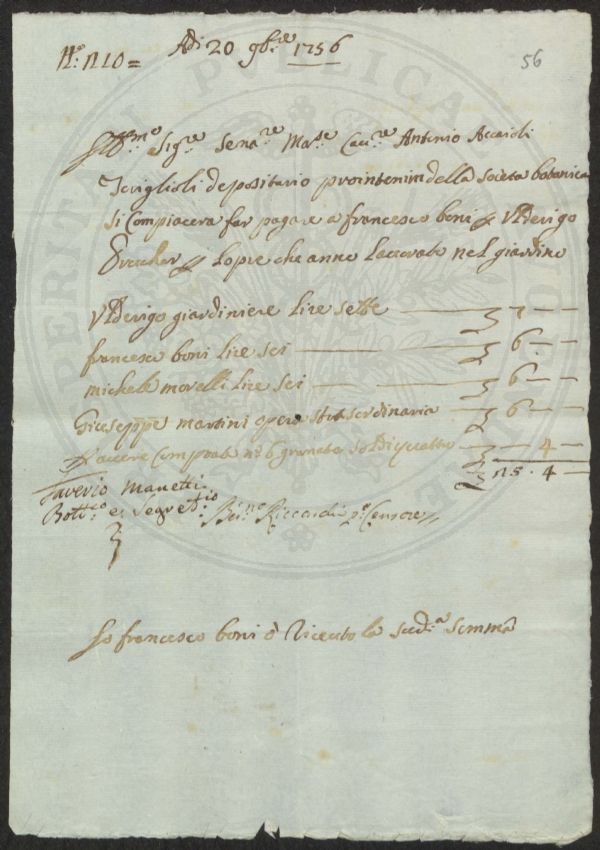 N.° 110 = Adì 20 9b.re 1756
56
Ill.mo Sig.re Sena.re Ma.se Cau.re Antonio Acciaioli
Toriglioli depositario prointerim della Società botanica
Si Compiacerà far pagare a francesco boni p Ulderigo
lopre che anno lauorato nel giardino
Ulderigo giardiniere lire sette — 7 — —
francesco boni lire sei — 6 — —
michele morelli lire sei — 6 — —
Giuseppe martini opera strasordinaria — 6 — —
p auere Comprato n.° 6 granate — 4 —
25 . 4 —
Saverio Manetti
Bott.co e Segret.io Ber.no Riccardi p.° Censore
Io francesco boni ò riceuto la sud.a Somma